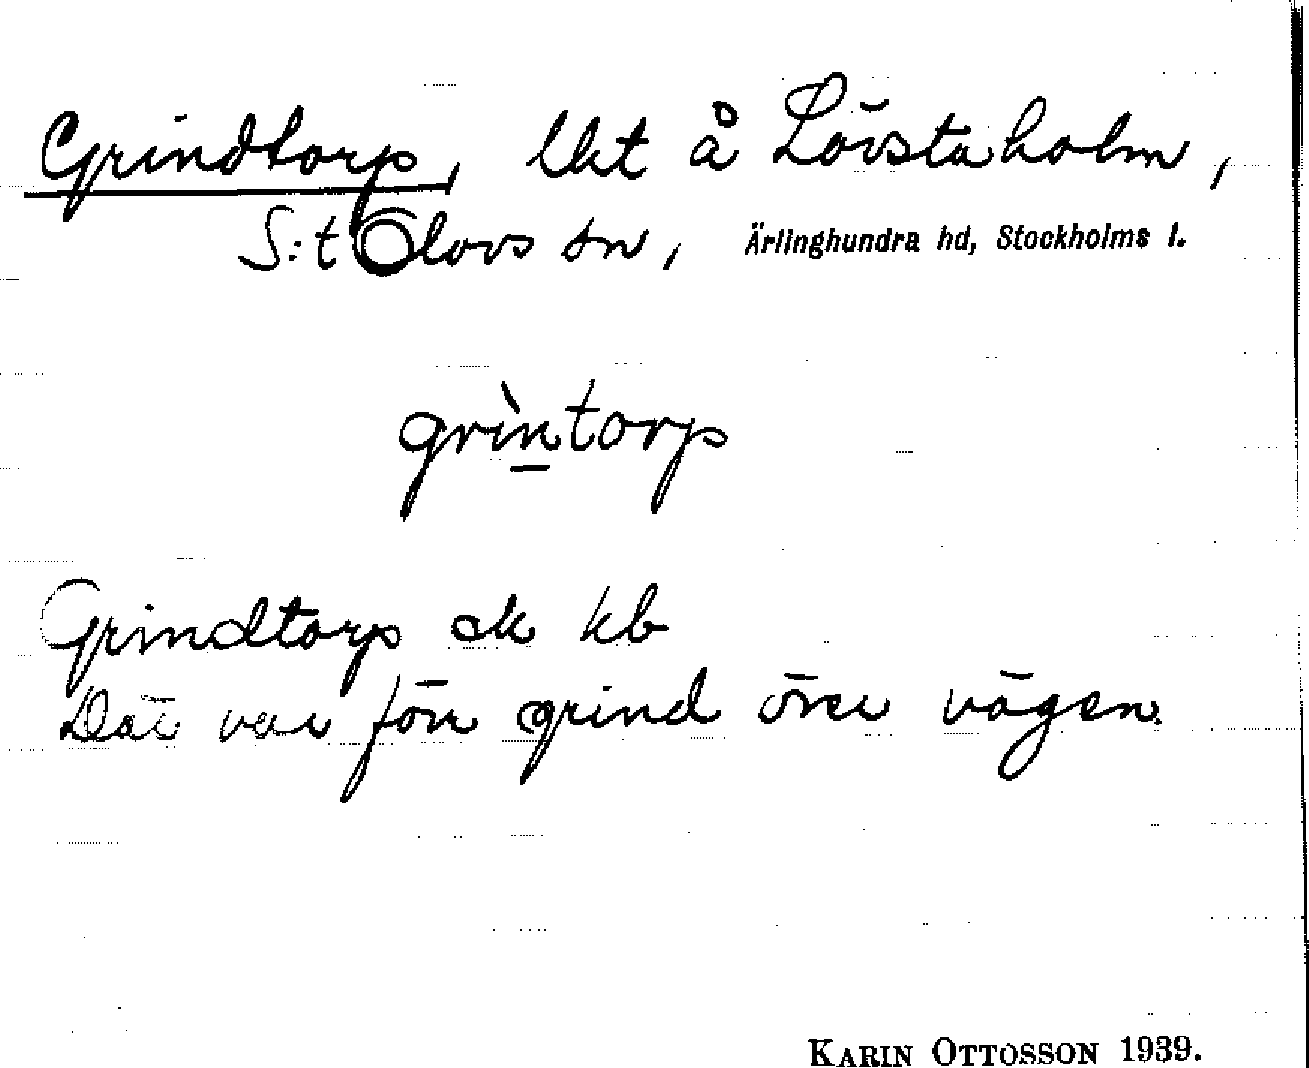 Grindtorp, lht å Lövstaholm,
S:t Olovs sn, Ärlinghundra hd, Stockholms l.
grìn̲torp
Grindtorp ek kb
Där var förr grind över vägen
KARIN OTTOSSON 1939.